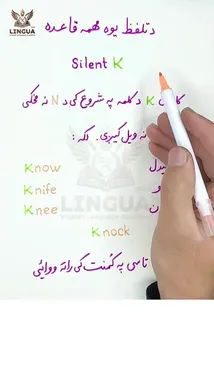 LINGUA
د تلفظ یوه مهمه قاعده
Silent K
K د کلمه په شروع کی د N نه مخکی
نه ویل کیږی. لکه:
Know
Knife
Knee
Knock
تاسی په کمنت کی راته ووائی
LINGUA